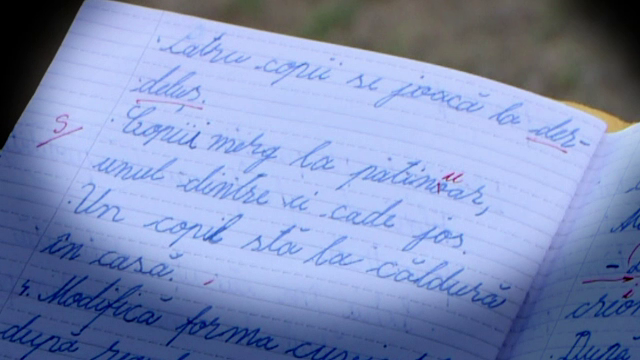 Patru copii se joacă la der-
deluș.
Copiii merg la patinoar,
unul dintre ei cade jos.
Un copil stă la căldură
în casă.
4. Modifică forma
după